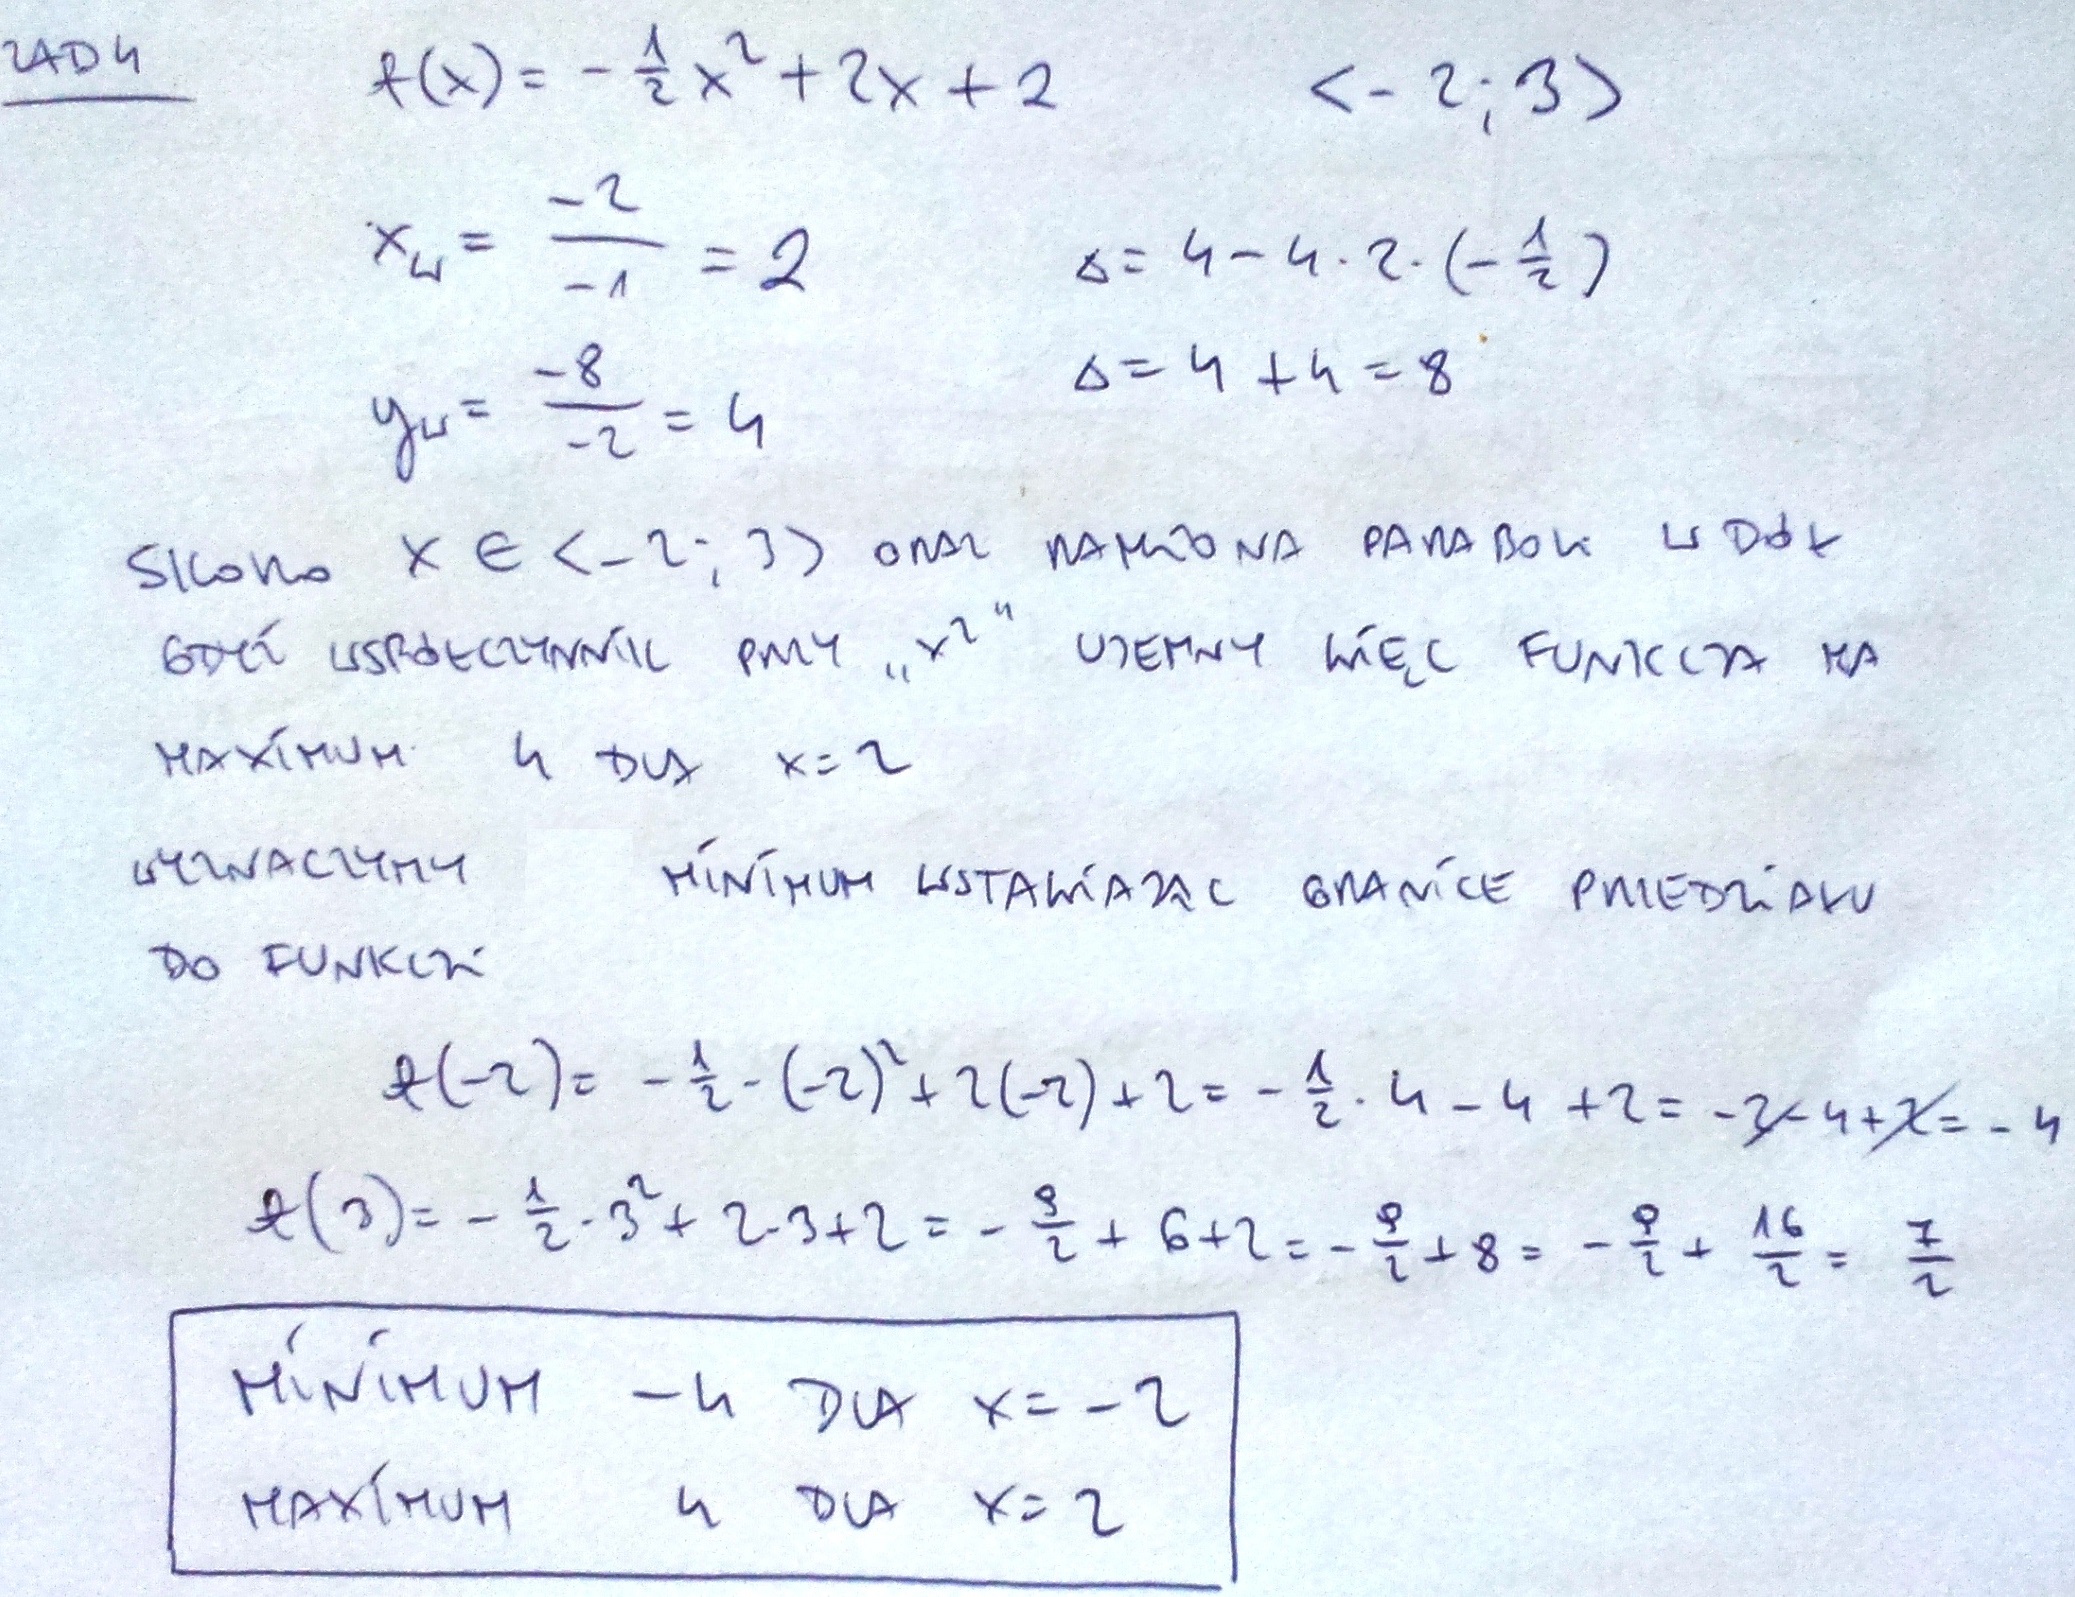 ZAD 4 f(x) = -1/2 x² + 2x + 2 <-2;3>
x_w = -2/-1 = 2 Δ = 4 - 4·2·(-1/2)
Δ = 4 + 4 = 8
y_w = -8/-2 = 4
SKORO X ∈ <-2;3> ORAZ RAMIONA PARABOLI W DÓŁ
GDYŻ WSPÓŁCZYNNIK PRZY „x²" UJEMNY WIĘC FUNKCJA MA
MAXIMUM 4 DLA x=2
WYZNACZYMY MINIMUM WSTAWIAJĄC GRANICE PRZEDZIAŁU
DO FUNKCJI
f(-2) = -1/2·(-2)² + 2(-2) + 2 = -1/2·4 - 4 + 2 = -2 - 4 + 2 = -4
f(3) = -1/2·3² + 2·3 + 2 = -9/2 + 6 + 2 = -9/2 + 8 = -9/2 + 16/2 = 7/2
MINIMUM -4 DLA x=-2
MAXIMUM 4 DLA x=2